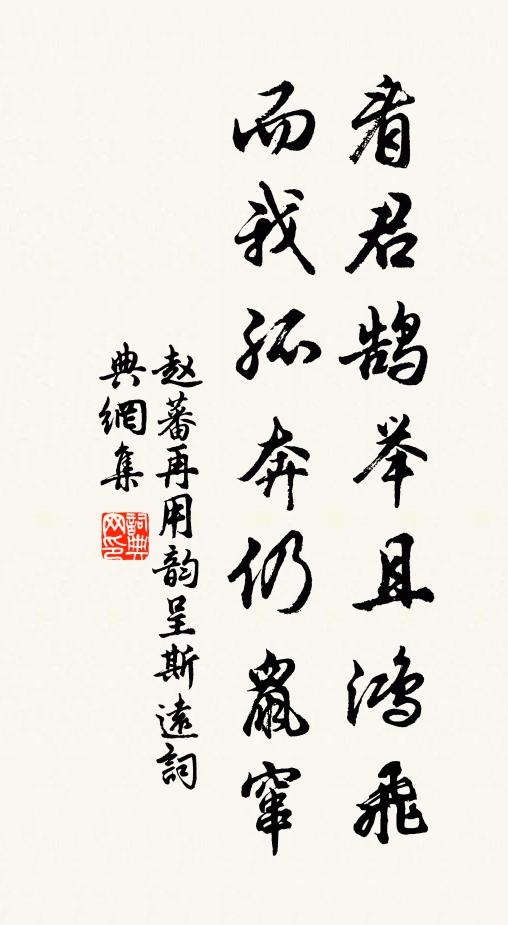 看君鹄举且鸿飞
而我孤奔仍鼠窜
赵蕃再用韵呈斯遠詞
典網集
詞典
网印